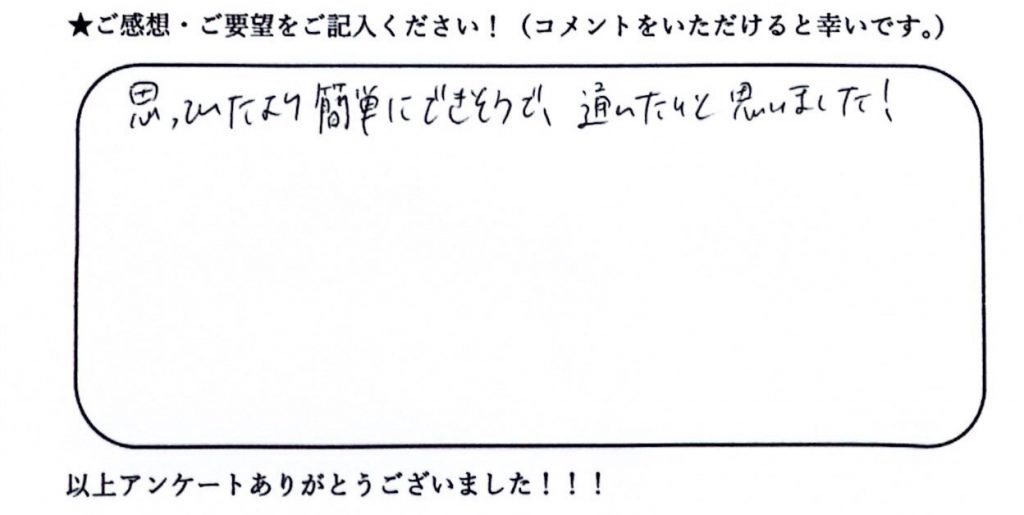 ★ご感想・ご要望をご記入ください！（コメントをいただけると幸いです。）
思っていたより簡単にできそうで、通いたいと思いました！
以上アンケートありがとうございました！！！